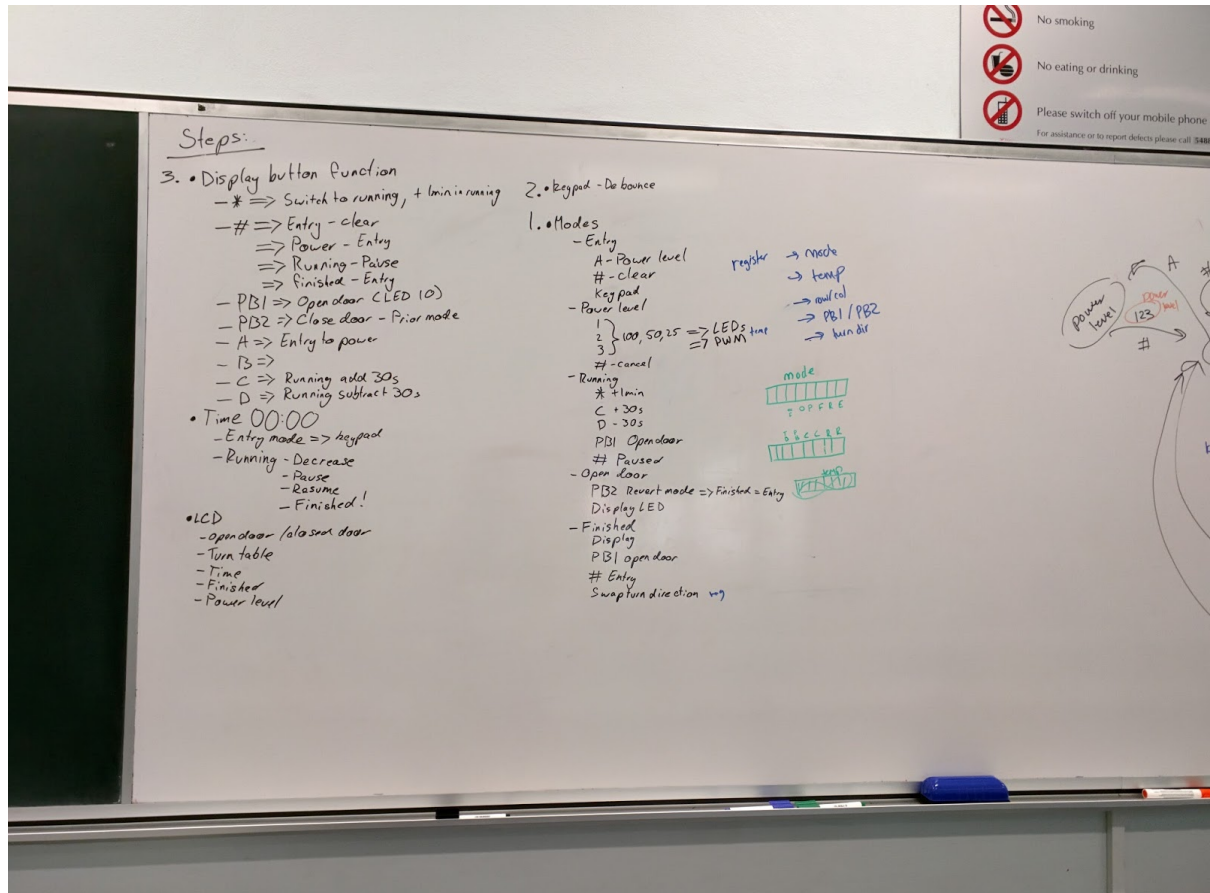 No smoking
No eating or drinking
Please switch off your mobile phone
For assistance or to report defects please call
Steps:
3. • Display button function
- * => Switch to running, + 1min in running
- # => Entry - clear
=> Power - Entry
=> Running - Pause
=> finished - Entry
- PB1 => Open door (LED 10)
- PB2 => Close door - Prior mode
- A => Entry to power
- B =>
- C => Running add 30s
- D => Running subtract 30s
• Time 00:00
- Entry mode => keypad
- Running - Decrease
- Pause
- Resume
- Finished!
• LCD
- Open door / closed door
- Turn table
- Time
- Finished
- Power level
2. • Keypad - Debounce
1. • Modes
- Entry
A - Power level
# - clear
Keypad
- Power level
1
2 } 100, 50, 25 => LEDs
3 => PWM
temp
# - cancel
- Running
* +1min
C + 30s
D - 30s
PB1 Open door
# Paused
- Open door
PB2 Revert mode => Finished = Entry
Display LED
- Finished
Display
PB1 open door
# Entry
Swap turn direction reg
register → mode
→ temp
→ row/col
→ PB1 / PB2
→ turn dir
mode
O P F R E
C C R R
temp
power level
A
123
power level
#